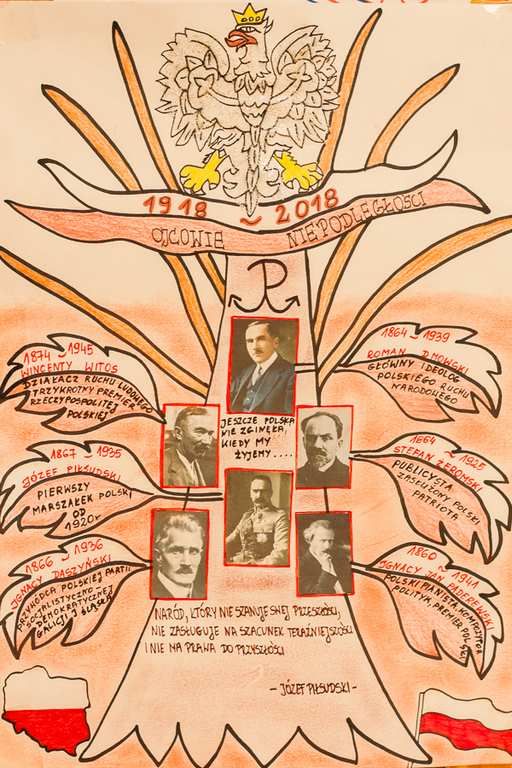 1918 ~ 2018
OJCOWIE NIEPODLEGŁOŚCI
1874 ~ 1945
WINCENTY WITOS
DZIAŁACZ RUCHU LUDOWEGO
TRZYKROTNY PREMIER
RZECZYPOSPOLITEJ
POLSKIEJ
1864 ~ 1939
ROMAN DMOWSKI
GŁÓWNY IDEOLOG
POLSKIEGO RUCHU
NARODOWEGO
JESZCZE POLSKA
NIE ZGINĘŁA,
KIEDY MY
ŻYJEMY ....
1867 ~ 1935
JÓZEF PIŁSUDSKI
PIERWSZY
MARSZAŁEK POLSKI
OD
1920r
1864 ~ 1925
STEFAN ŻEROMSKI
PUBLICYSTA
ZASŁUŻONY POLSKI
PATRIOTA
1866 ~ 1936
IGNACY DASZYŃSKI
PRZYWÓDCA POLSKIEJ PARTII
SOCJALISTYCZNO -
DEMOKRATYCZNEJ
GALICJI I ŚLĄSKA
1860 ~ 1941
IGNACY JAN PADEREWSKI
POLSKI PIANISTA, KOMPOZYTOR
POLITYK, PREMIER POLSKI
NARÓD, KTÓRY NIE SZANUJE SWEJ PRZESZŁOŚCI,
NIE ZASŁUGUJE NA SZACUNEK TERAŹNIEJSZOŚCI
I NIE MA PRAWA DO PRZYSZŁOŚCI
- JÓZEF PIŁSUDSKI -